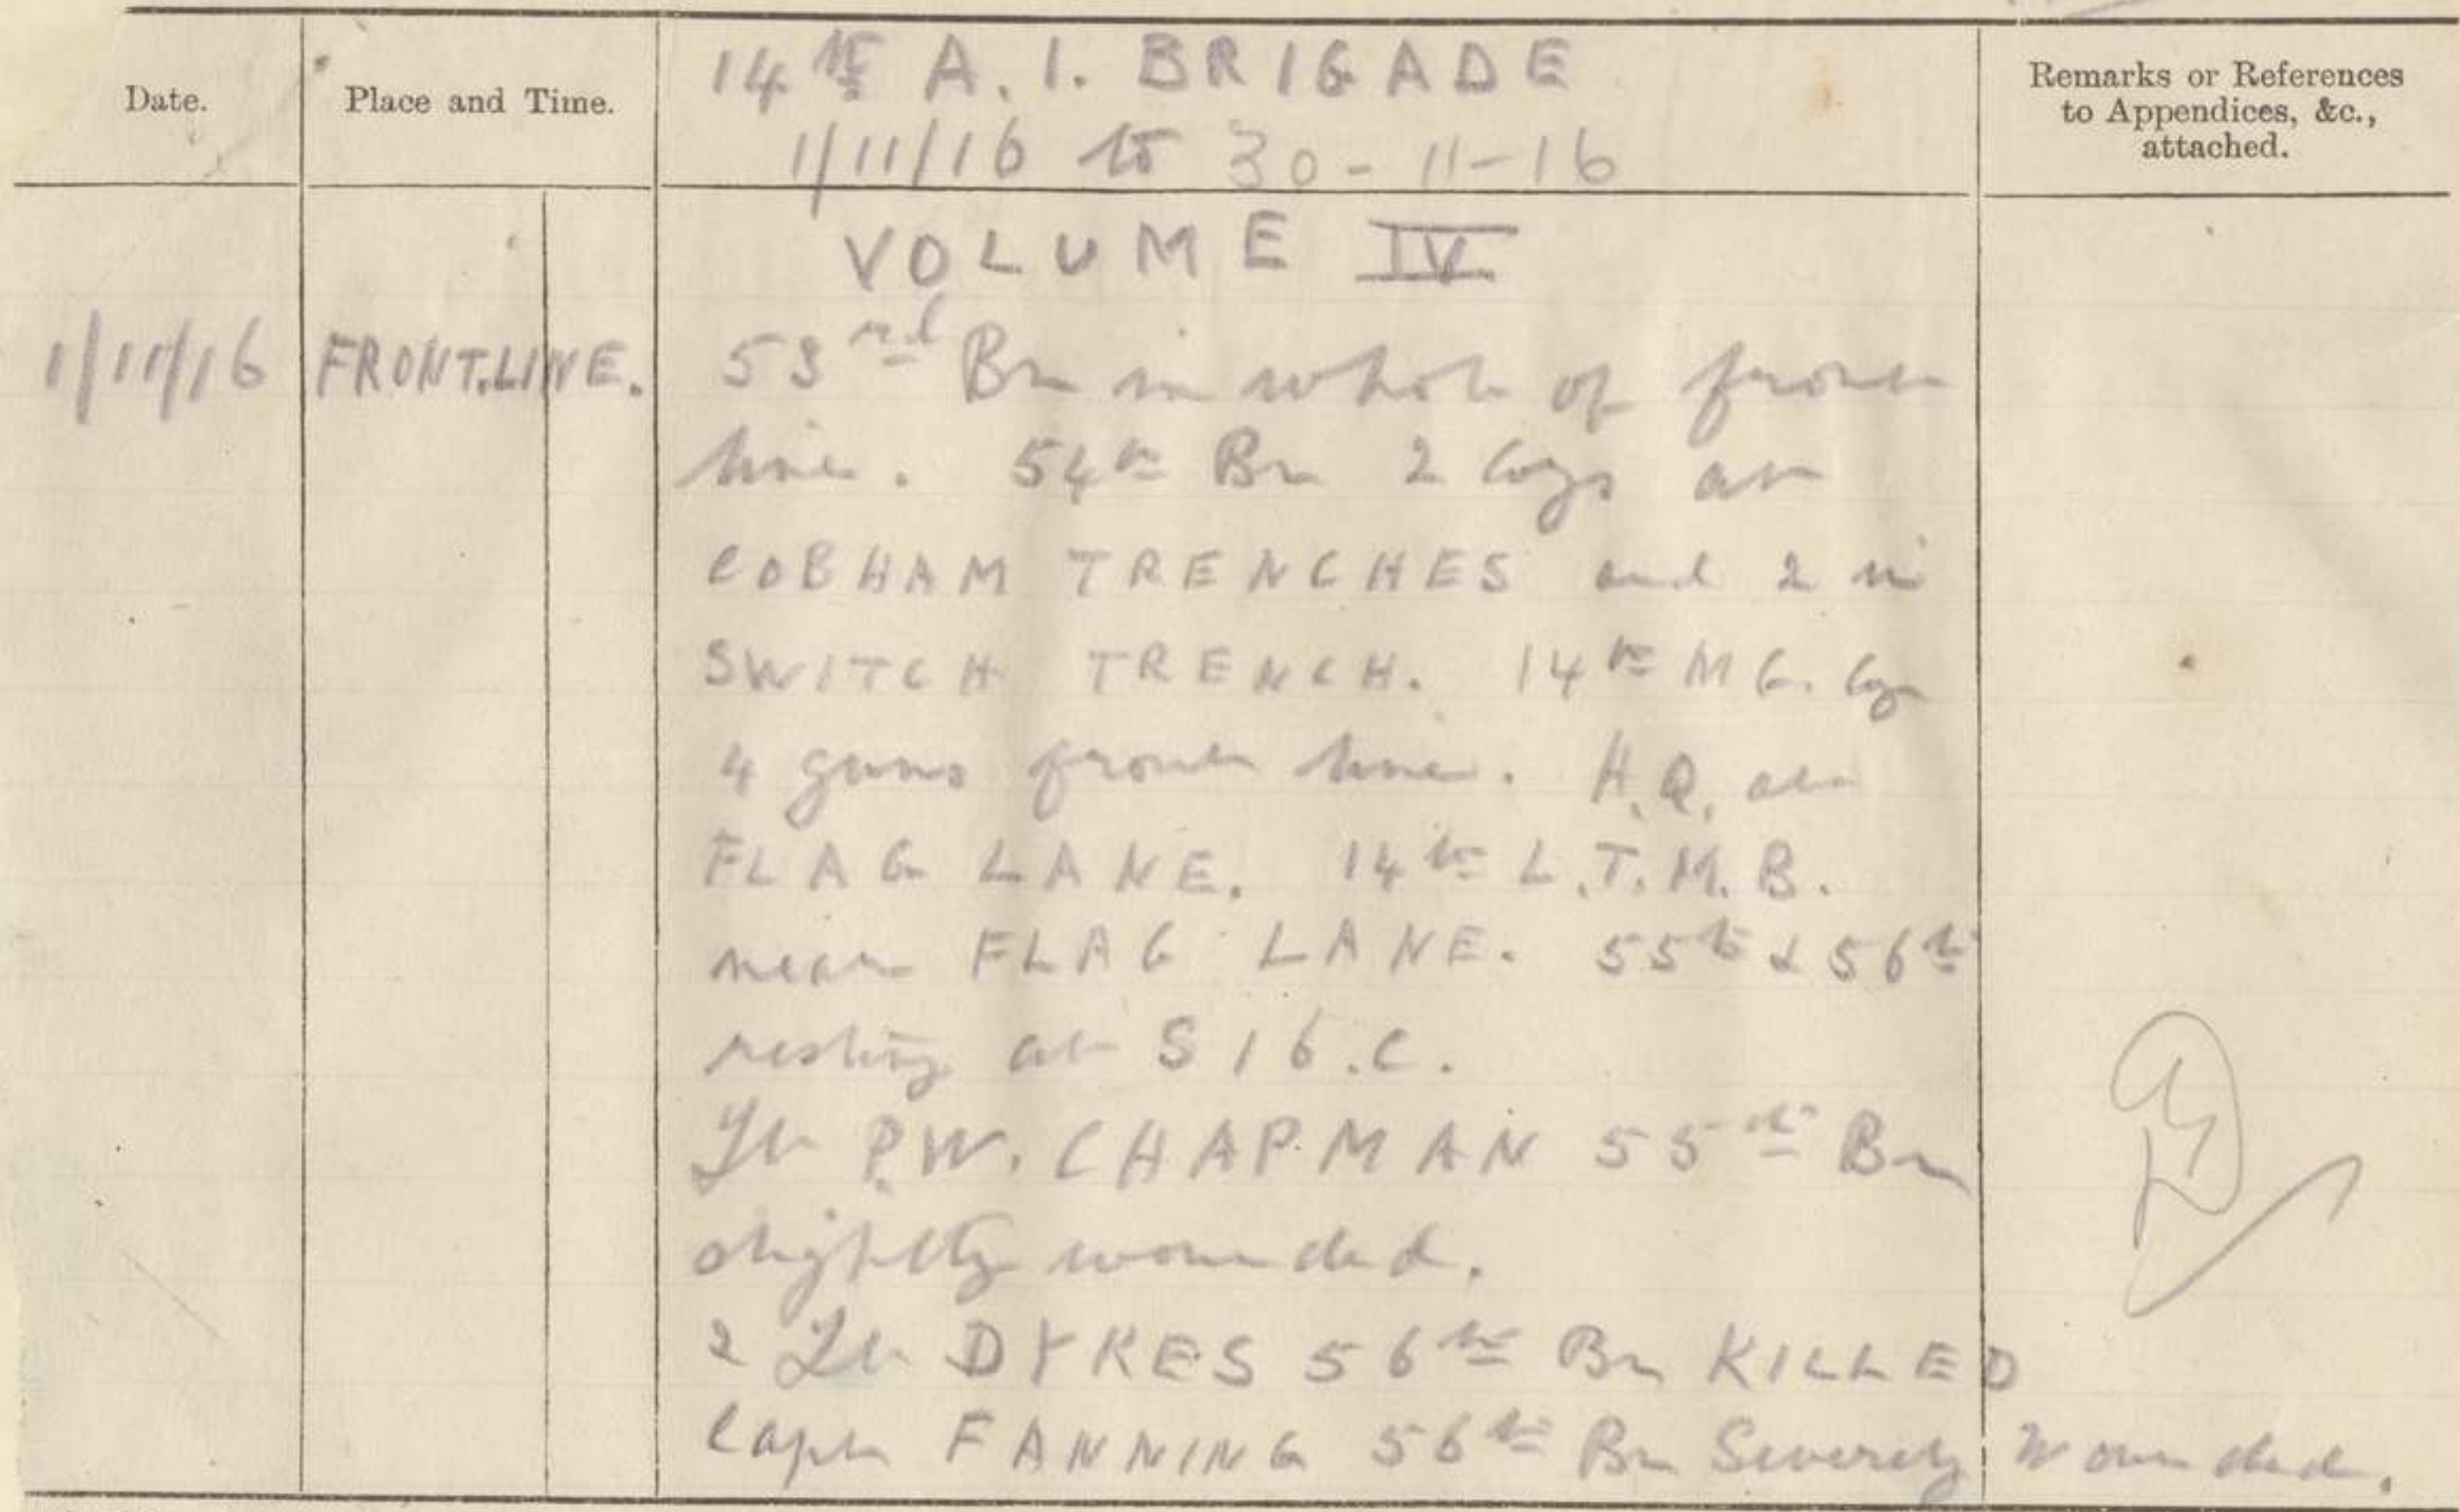 Date.
Place and Time.
14th A. I. BRIGADE
1/11/16 to 30-11-16
Remarks or References
to Appendices, &c.,
attached.
VOLUME IV
1/11/16 FRONT.LINE. 53rd Bn in whole of front
line. 54th Bn 2 Coys at
COBHAM TRENCHES and 2 in
SWITCH TRENCH. 14th M G. Coy
4 guns front line. H.Q. at
FLAG LANE. 14th L.T.M.B.
near FLAG LANE. 55th & 56th
resting at S 16.C.
Lt P.W. CHAPMAN 55th Bn
slightly wounded.
2 Lt DYKES 56th Bn KILLED
Capt FANNING 56th Bn Severely Wounded.